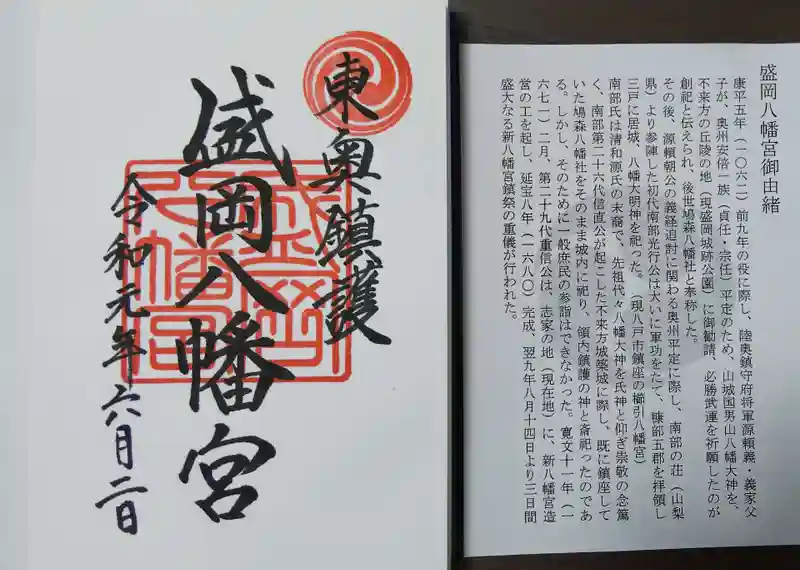 東奥鎮護
盛岡八幡宮
令和元年六月二日
盛岡八幡宮御由緒
康平五年（一〇六二）前九年の役に際し、陸奥鎮守府将軍源頼義・義家父
子が、奥州安倍一族（貞任・宗任）平定のため、山城国男山八幡大神を、
不来方の丘陵の地（現盛岡城跡公園）に御勧請、必勝武運を祈願したのが
創祀と伝えられ、後世鳩森八幡社と奉称した。
その後、源頼朝公の義経追討に関わる奥州平定に際し、南部の荘（山梨
県）より参陣した初代南部光行公は大いに軍功をたて、糠部五郡を拝領し
三戸に居城、八幡大明神を祀った。（現八戸市鎮座の櫛引八幡宮）
南部氏は清和源氏の末裔で、先祖代々八幡大神を氏神と仰ぎ崇敬の念篤
く、南部第二十六代信直公が起こした不来方城築城に際し、既に鎮座して
いた鳩森八幡社をそのまま城内に祀り、領内鎮護の神と斎祀ったのであ
る。しかし、そのために一般庶民の参詣はできなかった。寛文十一年（一
六七一）二月、第二十九代重信公は、志家の地（現在地）に、新八幡宮造
営の工を起し、延宝八年（一六八〇）完成、翌九年八月十四日より三日間
盛大なる新八幡宮鎮祭の重儀が行われた。